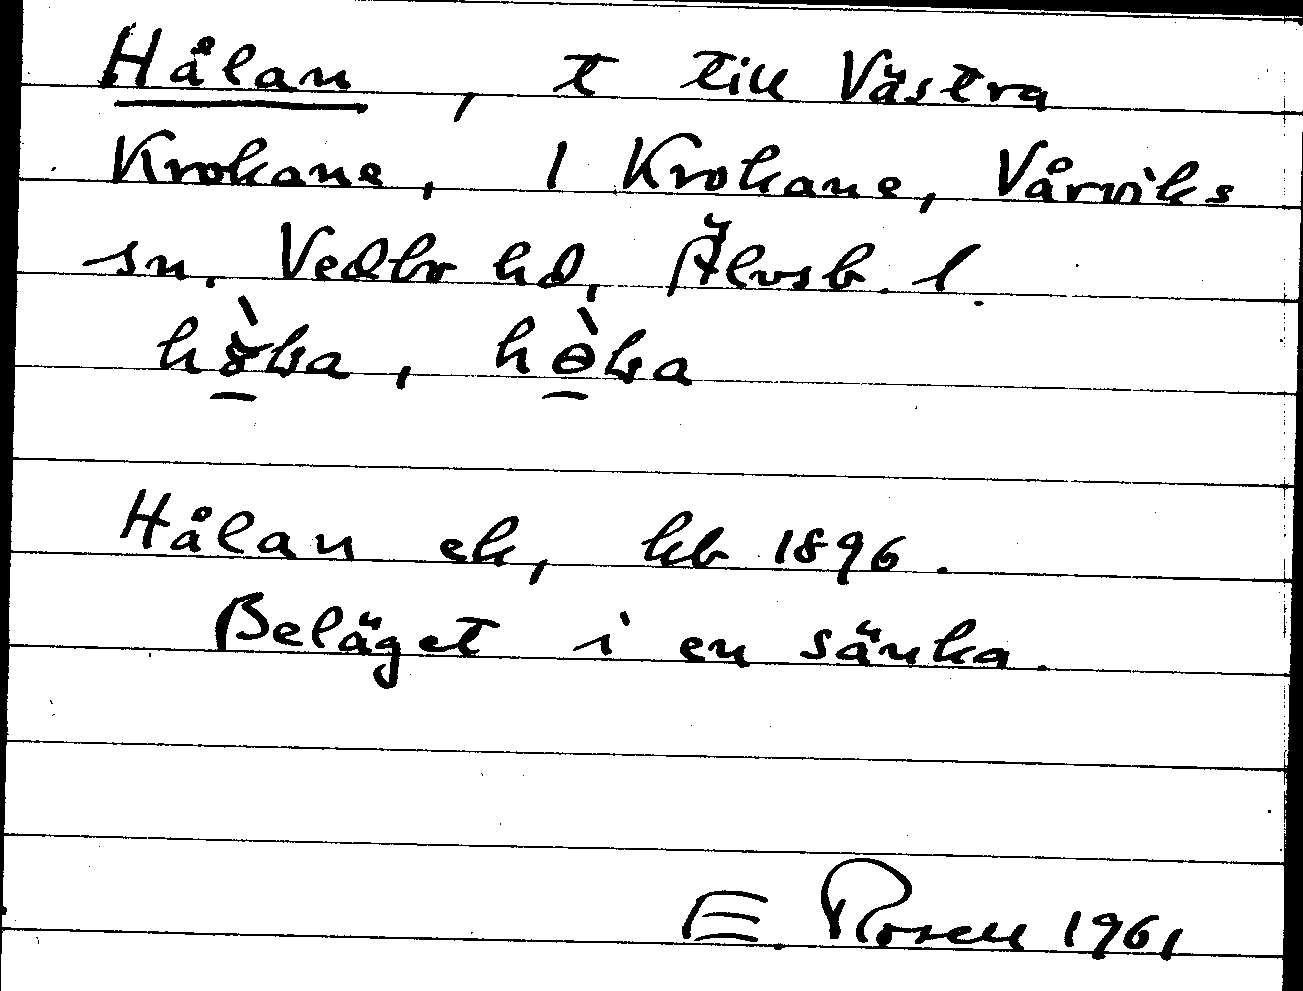 Hålan, t till Västra
Krokane, 1 Krokane, Vårviks
sn, Vedbo hd, Älvsb. l.
Hålan ek, kb 1896.
Beläget i en sänka.
E. Rosell 1961